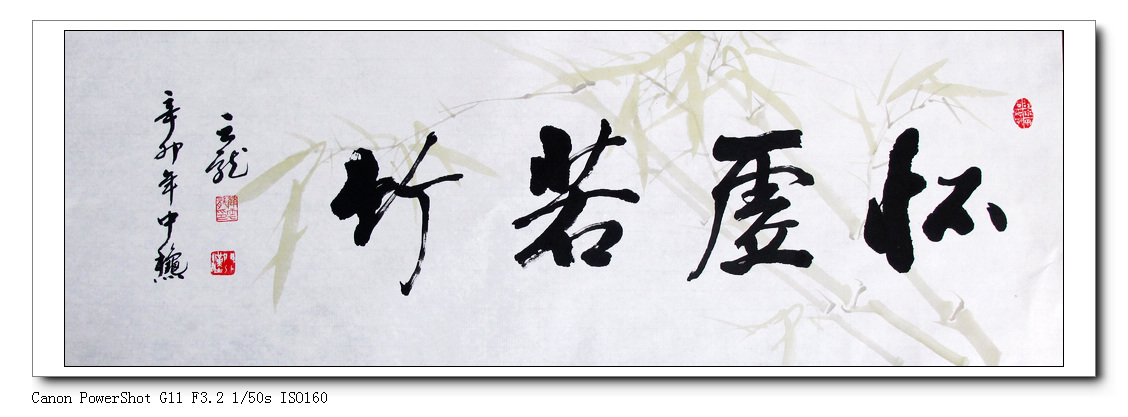 怀虚若竹
辛卯年中龝
云龙
Canon PowerShot G11 F3.2 1/50s ISO160